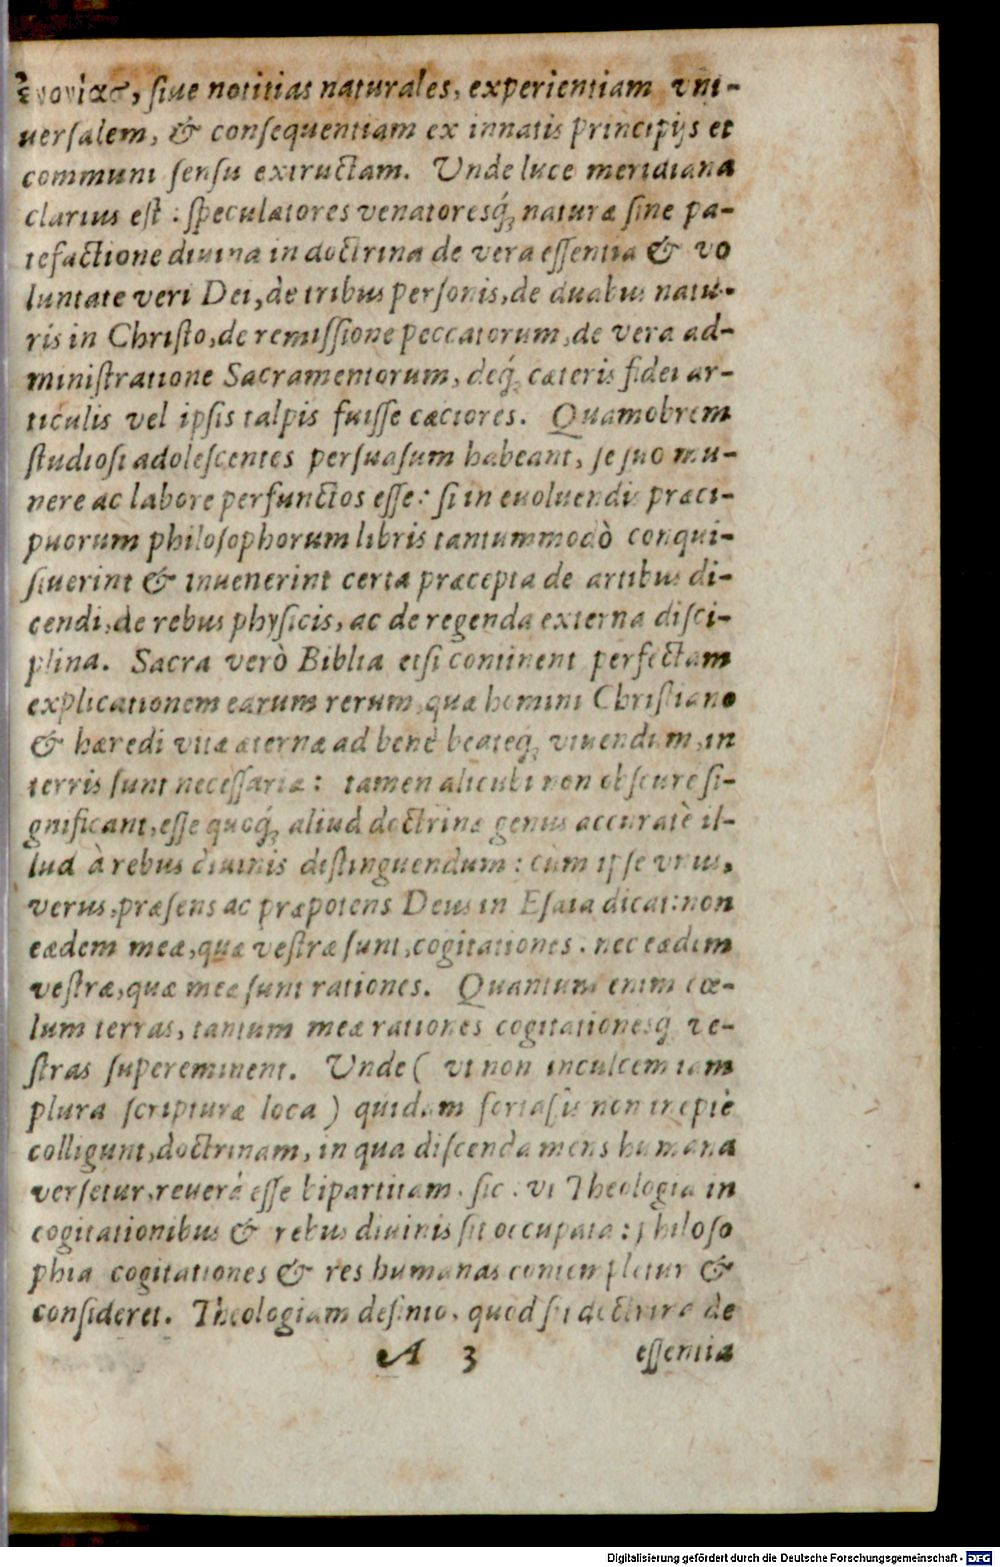 ἐννοίας, ſiue notitias naturales, experientiam vni-
uerſalem, & conſequentiam ex innatis principijs et
communi ſenſu extructam. Unde luce meridiana
clarius eſt : ſpeculatores venatoresq́; naturæ ſine pa-
tefactione diuina in doctrina de vera eſſentia & vo
luntate veri Dei, de tribus perſonis, de duabus natu-
ris in Chriſto, de remiſſione peccatorum, de vera ad-
miniſtratione Sacramentorum, deq́; cæteris fidei ar-
ticulis vel ipſis talpis fuiſſe cæciores. Quamobrem
ſtudioſi adoleſcentes perſuaſum habeant, ſe ſuo mu-
nere ac labore perfunctos eſſe: ſi in euoluendis præci-
puorum philoſophorum libris tantummodò conqui-
ſiuerint & inuenerint certa præcepta de artibus di-
cendi, de rebus phyſicis, ac de regenda externa diſci-
plina. Sacra verò Biblia etſi continent perfectam
explicationem earum rerum, quæ homini Chriſtiano
& hæredi vitæ æternæ ad benè beateq; viuendum, in
terris ſunt neceſſaria: tamen alicubi non obſcure ſi-
gnificant, eſſe quoq́; aliud doctrinæ genus accuratè il-
lud à rebus diuinis deſtinguendum: cùm ipſe vnus,
verus, præſens ac præpotens Deus in Eſaia dicat: non
eædem meæ, quæ veſtræ ſunt, cogitationes. nec eædem
veſtræ, quæ meæ ſunt rationes. Quantum enim cœ-
lum terras, tantum meæ rationes cogitationesq; ve-
ſtras ſupereminent. Unde ( vt non inculcem iam
plura ſcripturæ loca ) quidam fortaſſis non ineptè
colligunt, doctrinam, in qua diſcenda mens humana
verſetur, reuerá eſſe bipartitam. ſic. vt Theologia in
cogitationibus & rebus diuinis ſit occupata: philoſo
phia cogitationes & res humanas contempletur &
conſideret. Theologiam definio, quod ſit doctrina de
A 3 eſſentia
Digitalisierung gefördert durch die Deutsche Forschungsgemeinschaft - DFG